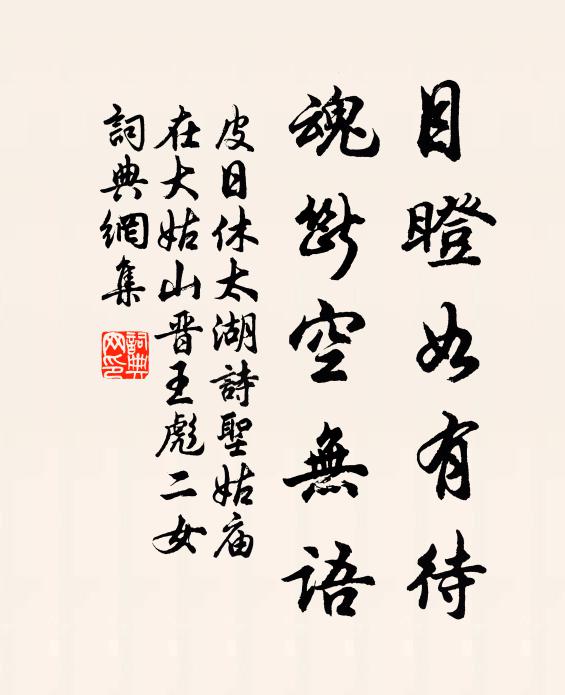 目瞪如有待
魂斷空無語
皮日休太湖詩聖姑庙
在大姑山晋王彪二女
詞典網集
詞典網印